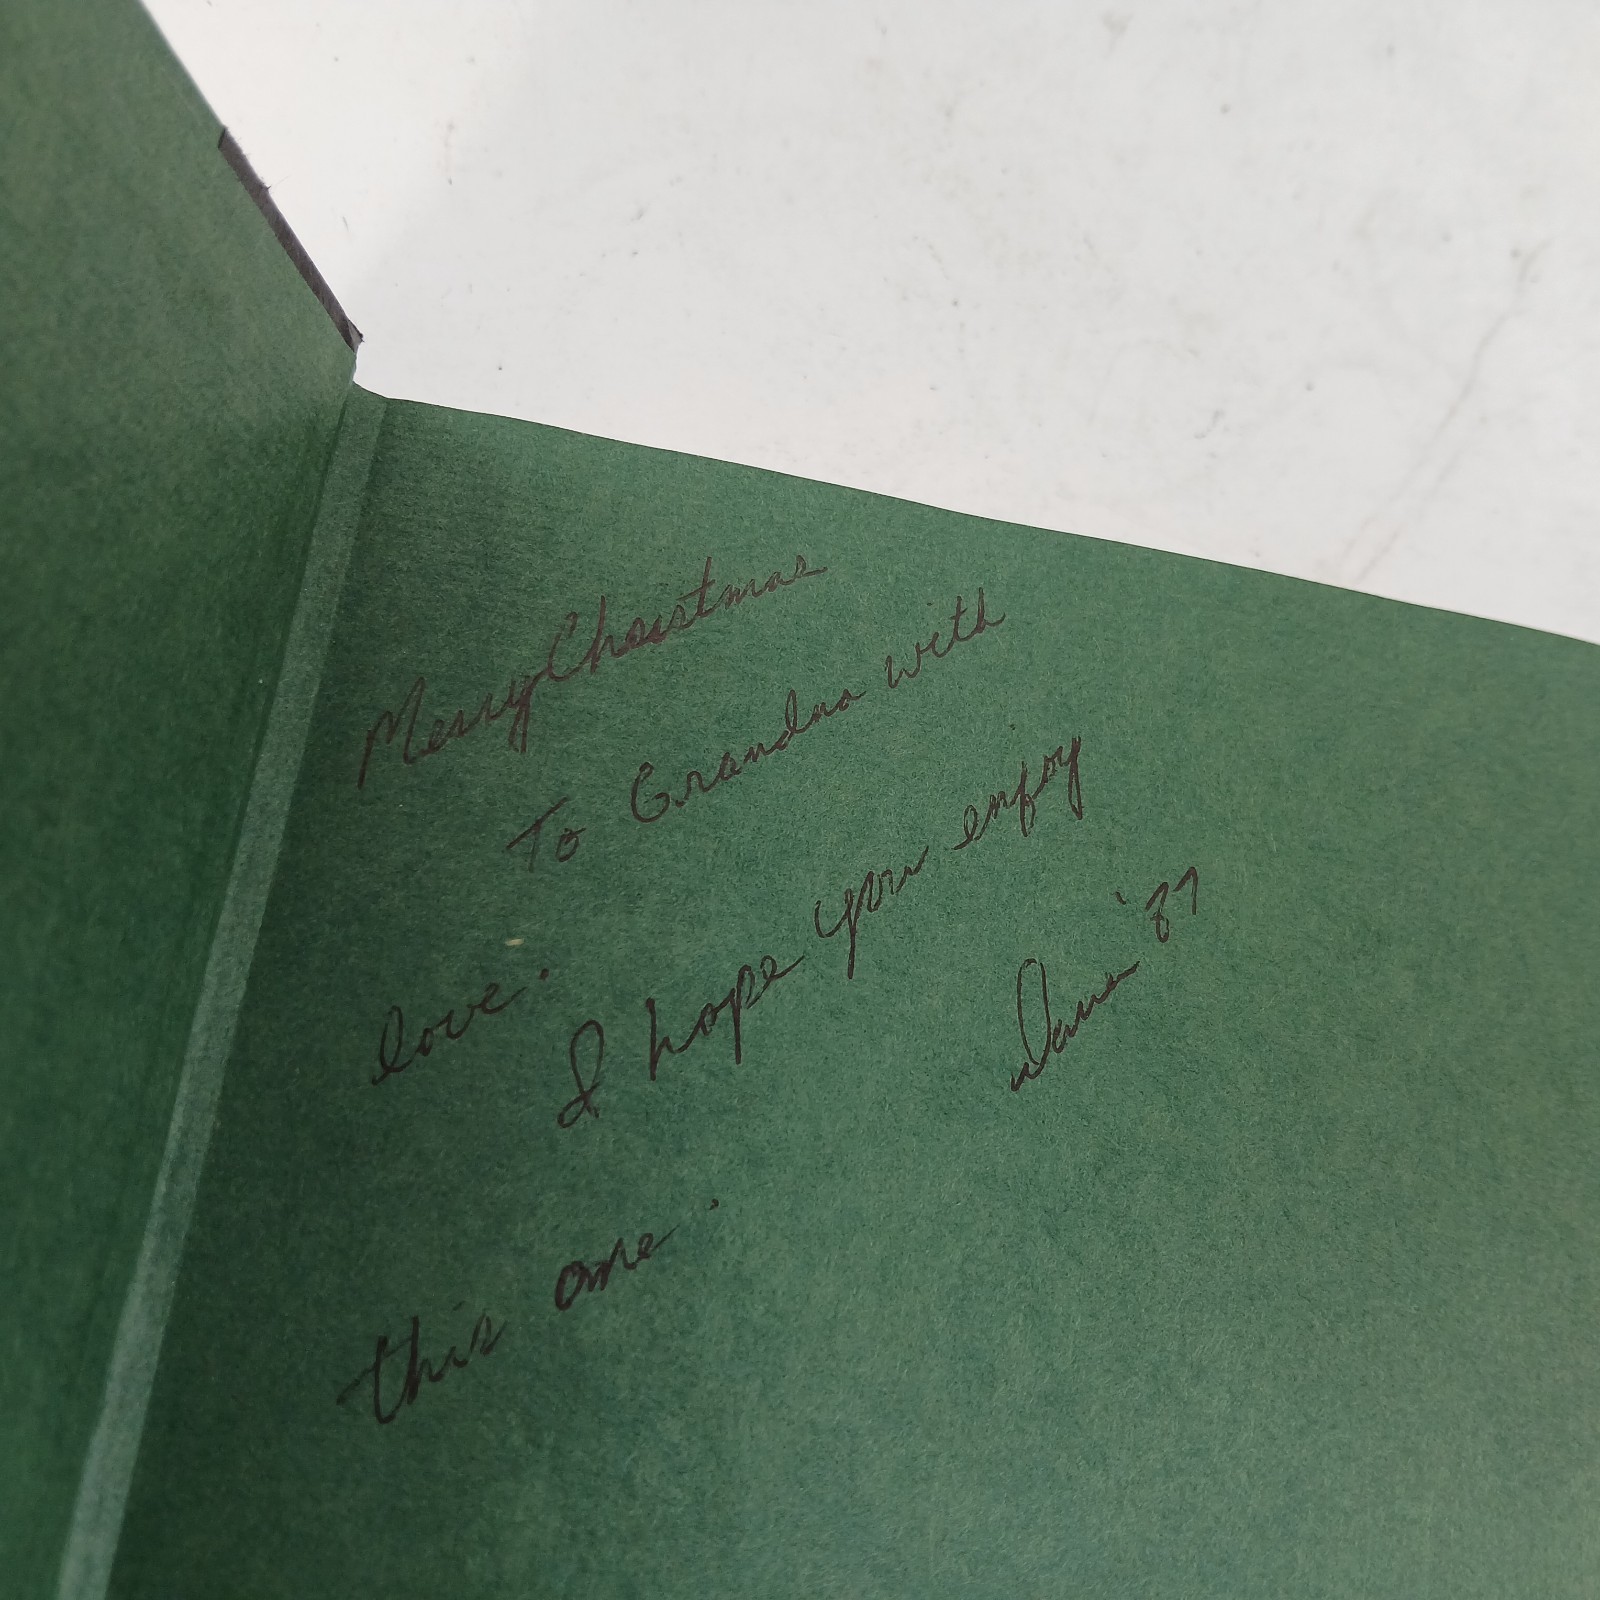 Merry Christmas
To Grandma with
love.
I hope you enjoy
this one.
'87